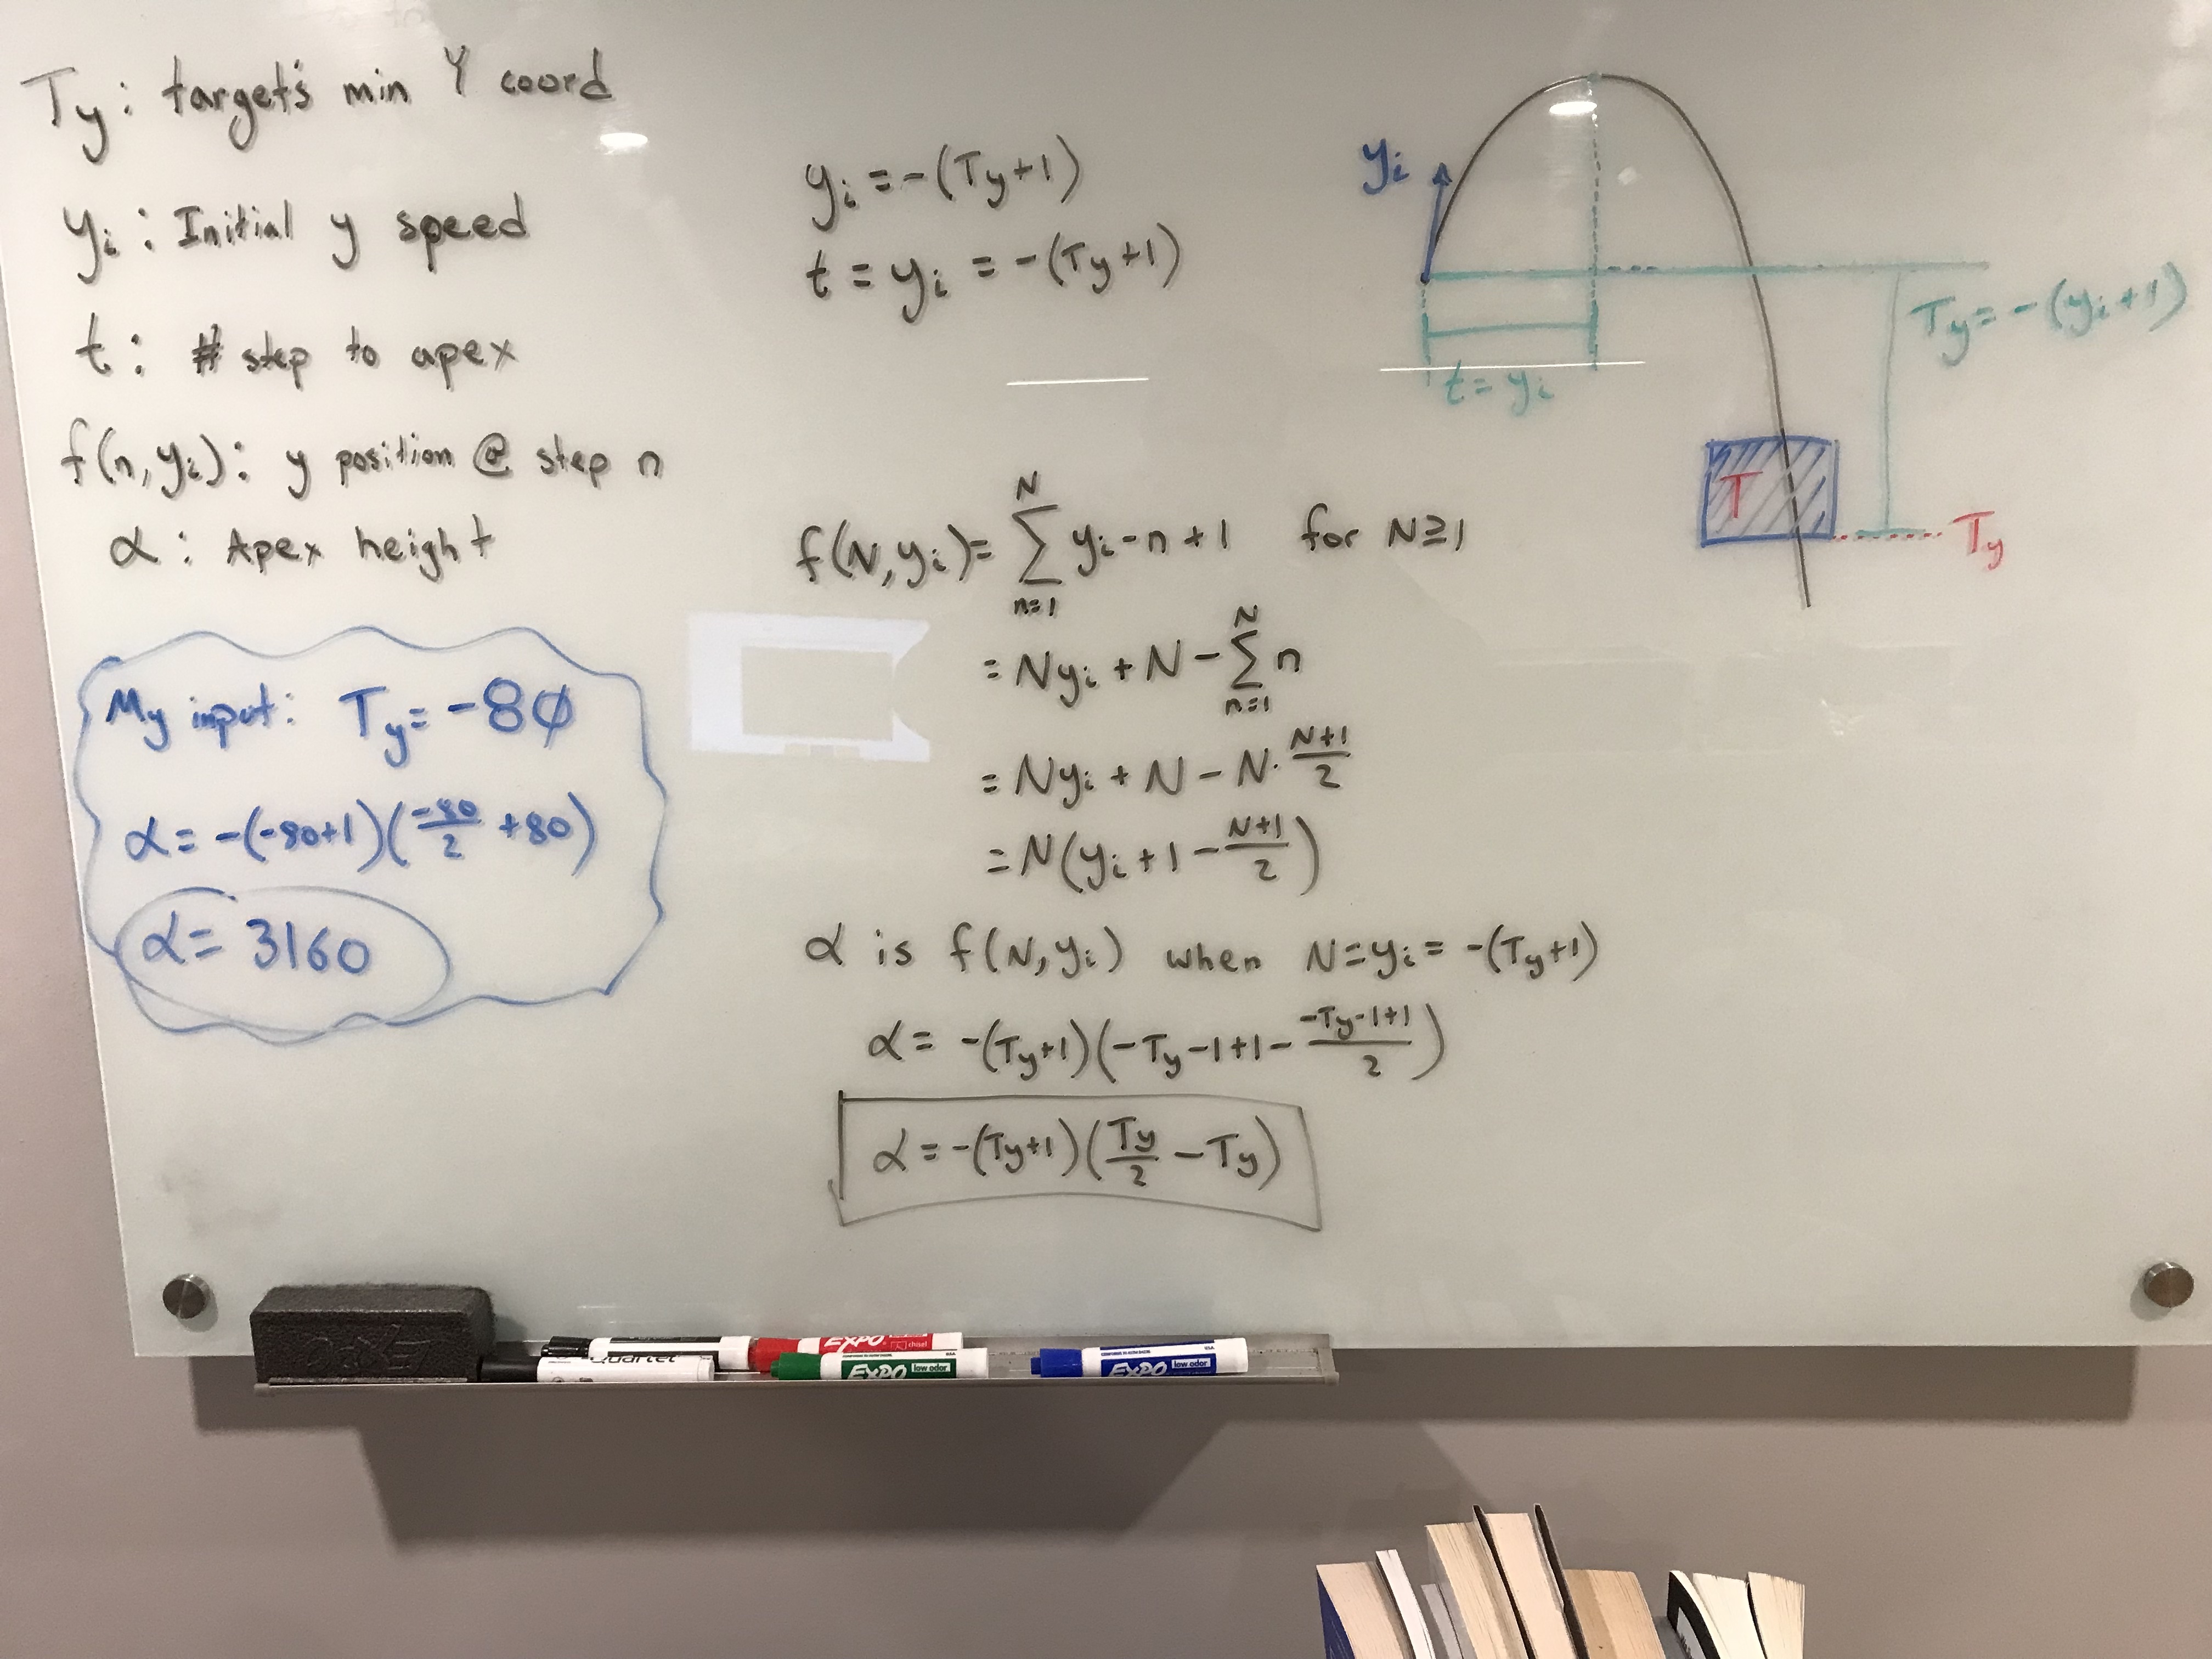 Ty: target's min Y coord
yi: Initial y speed
t: # step to apex
f(n, yi): y position @ step n
α: Apex height
My input: Ty = -80
α = -(-80+1)(-80/2 +80)
α = 3160
yi = -(Ty+1)
t = yi = -(Ty+1)
f(N, yi) = N Σ n=1 yi - n + 1 for N ≥ 1
= Nyi + N - N Σ n=1 n
= Nyi + N - N · N+1/2
= N(yi + 1 - N+1/2)
α is f(N, yi) when N = yi = -(Ty+1)
α = -(Ty+1)(-Ty-1+1- -Ty-1+1/2)
α = -(Ty+1)(Ty/2 - Ty)
yi
Ty = -(yi+1)
t = yi
T
Ty
EXPO
Quartet
EXPO chisel
EXPO low odor
EXPO low odor